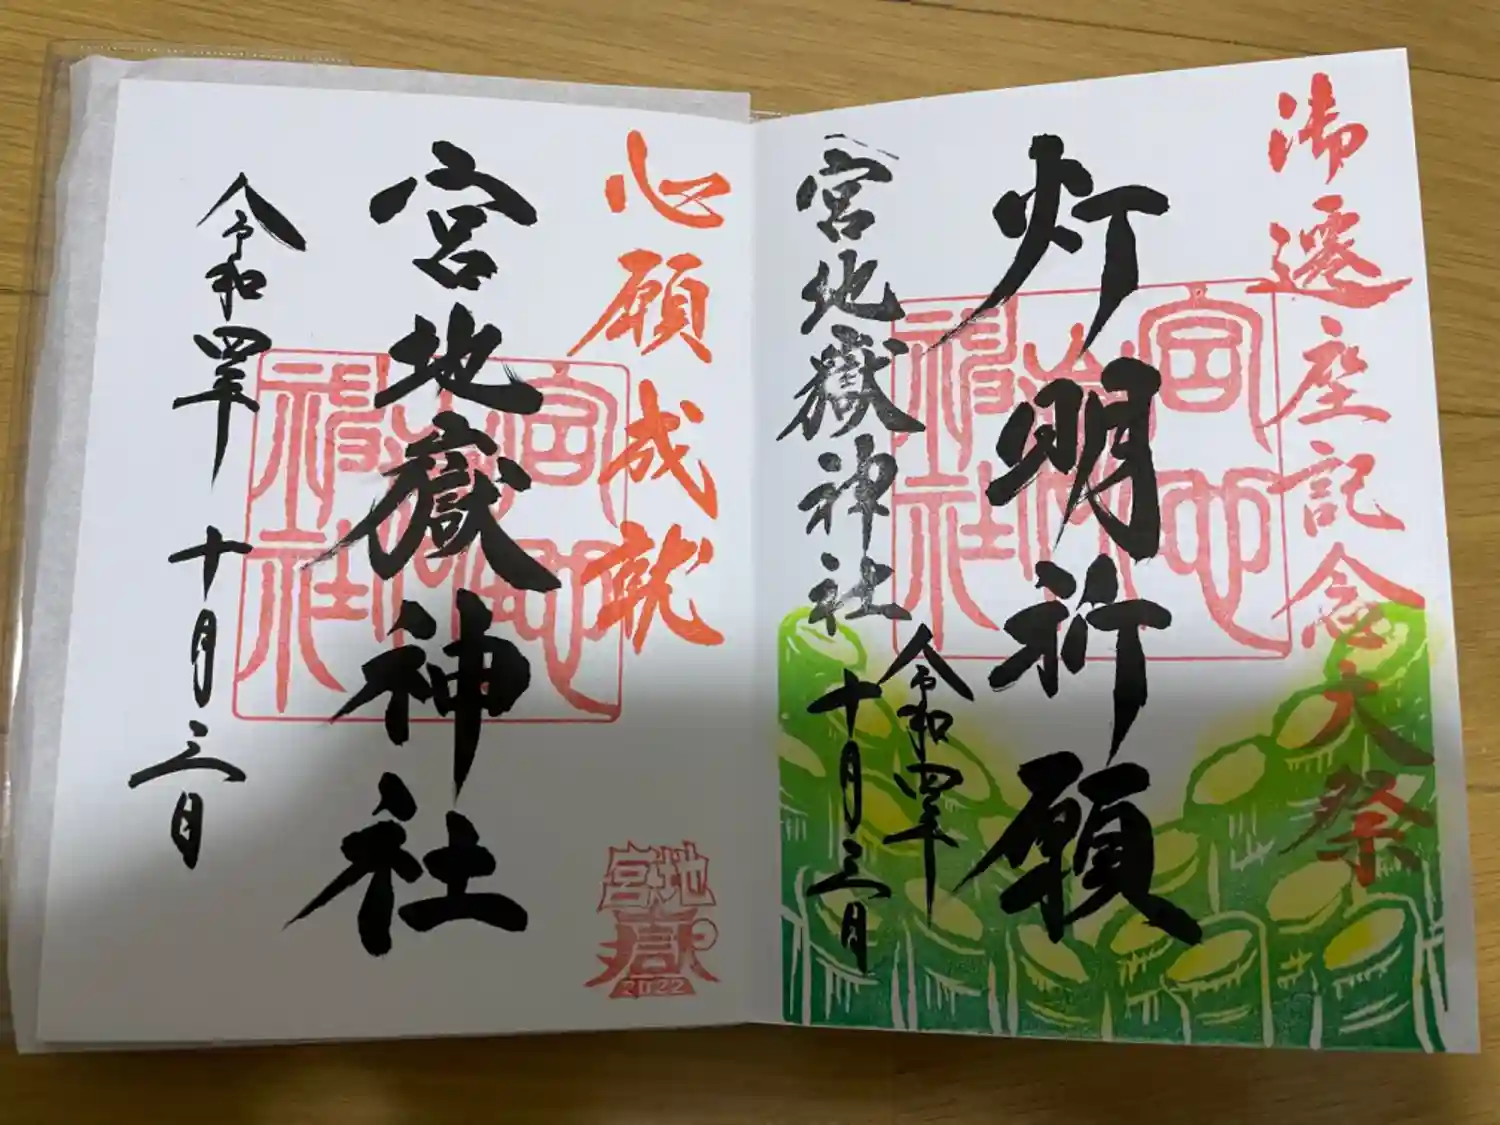 御遷座記念大祭
灯明祈願
宮地嶽神社
令和四年
十月三日
宮地嶽神社
心願成就
宮地嶽神社
宮地嶽神社
令和四年 十月三日
宮地嶽
2022